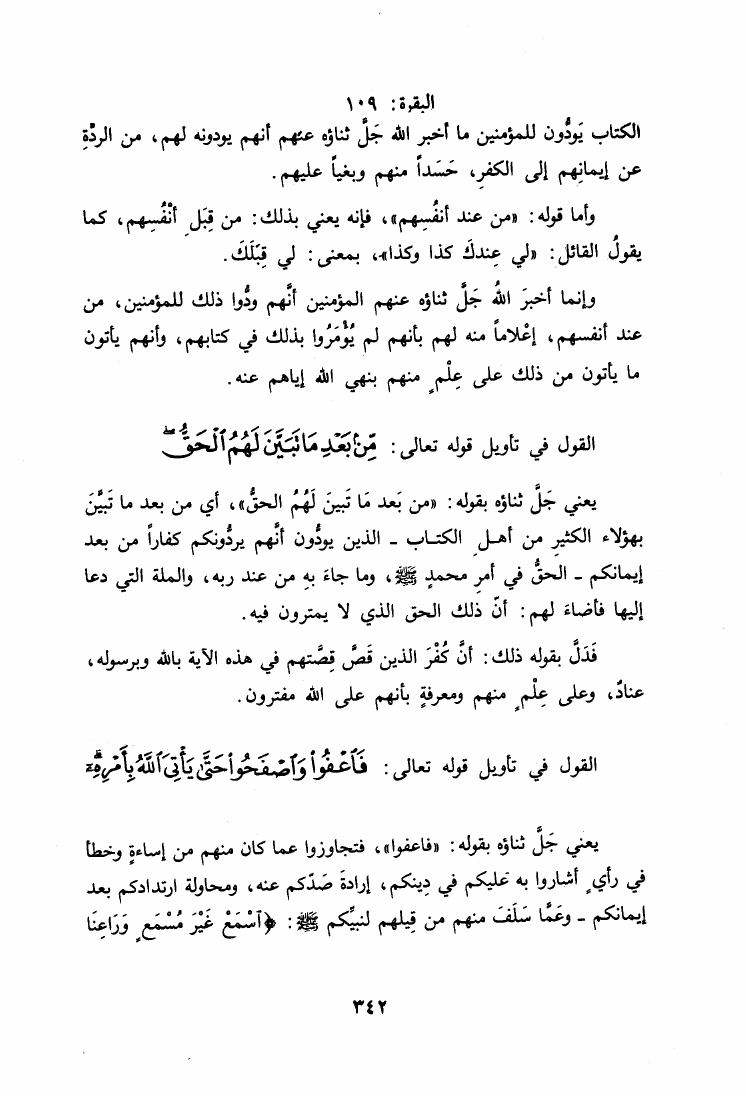 البقرة: ١٠٩
الكتاب يَودُّون للمؤمنين ما أخبر الله جَلَّ ثناؤه عنهم أنهم يودونه لهم، من الردّةِ
عن إيمانِهم إلى الكفرِ، حَسَداً منهم وبغياً عليهم.
وأما قوله: «من عند أنفُسِهم»، فإنه يعني بذلك: من قِبَلِ أنْفُسِهم، كما
يقولُ القائل: «لي عِندكَ كذا وكذا»، بمعنى: لي قِبَلَكَ.
وإنما أخبرَ اللهُ جَلَّ ثناؤه عنهم المؤمنين أنَّهم ودُّوا ذلك للمؤمنين، من
عند أنفسهم، إعْلاماً منه لهم بأنهم لم يُؤْمَرُوا بذلك في كتابهم، وأنهم يأتون
ما يأتون من ذلك على عِلْمٍ منهم بنهي الله إياهم عنه.
القول في تأويل قوله تعالى: مِّنۢ بَعْدِ مَا تَبَيَّنَ لَهُمُ ٱلْحَقُّ ۖ
يعني جَلَّ ثناؤه بقوله: «من بَعد مَا تَبينَ لَهُمُ الحقُّ»، أي من بعد ما تَبيَّنَ
بهؤلاء الكثيرِ من أهـلِ الكتـاب ـ الذين يودُّون أنَّهم يردُّونكم كفاراً من بعد
إيمانكم ـ الحقُّ في أمرِ محمدٍ ﷺ، وما جاءَ بهِ من عند ربه، والملة التي دعا
إليها فأضاءَ لهم: أنّ ذلك الحق الذي لا يمترون فيه.
فَدَلَّ بقوله ذلك: أنَّ كُفْرَ الذين قَصَّ قِصَّتهم في هذه الآية بالله وبرسوله،
عنادٌ، وعلى عِلْمٍ منهم ومعرفةٍ بأنهم على الله مفترون.
القول في تأويل قوله تعالى: فَٱعْفُوا۟ وَٱصْفَحُوا۟ حَتَّىٰ يَأْتِىَ ٱللَّهُ بِأَمْرِهِۦٓ ۗ
يعني جَلَّ ثناؤه بقوله: «فاعفوا»، فتجاوزوا عما كان منهم من إساءةٍ وخطأ
في رأيٍ أشاروا به عليكم في دِينكم، إرادةَ صَدّكم عنه، ومحاولة ارتدادكم بعد
إيمانكم ـ وعَمَّا سَلَفَ منهم من قِيلهم لنبيِّكم ﷺ: ﴿ٱسْمَعْ غَيْرَ مُسْمَعٍ وَرَاعِنَا
٣٤٢